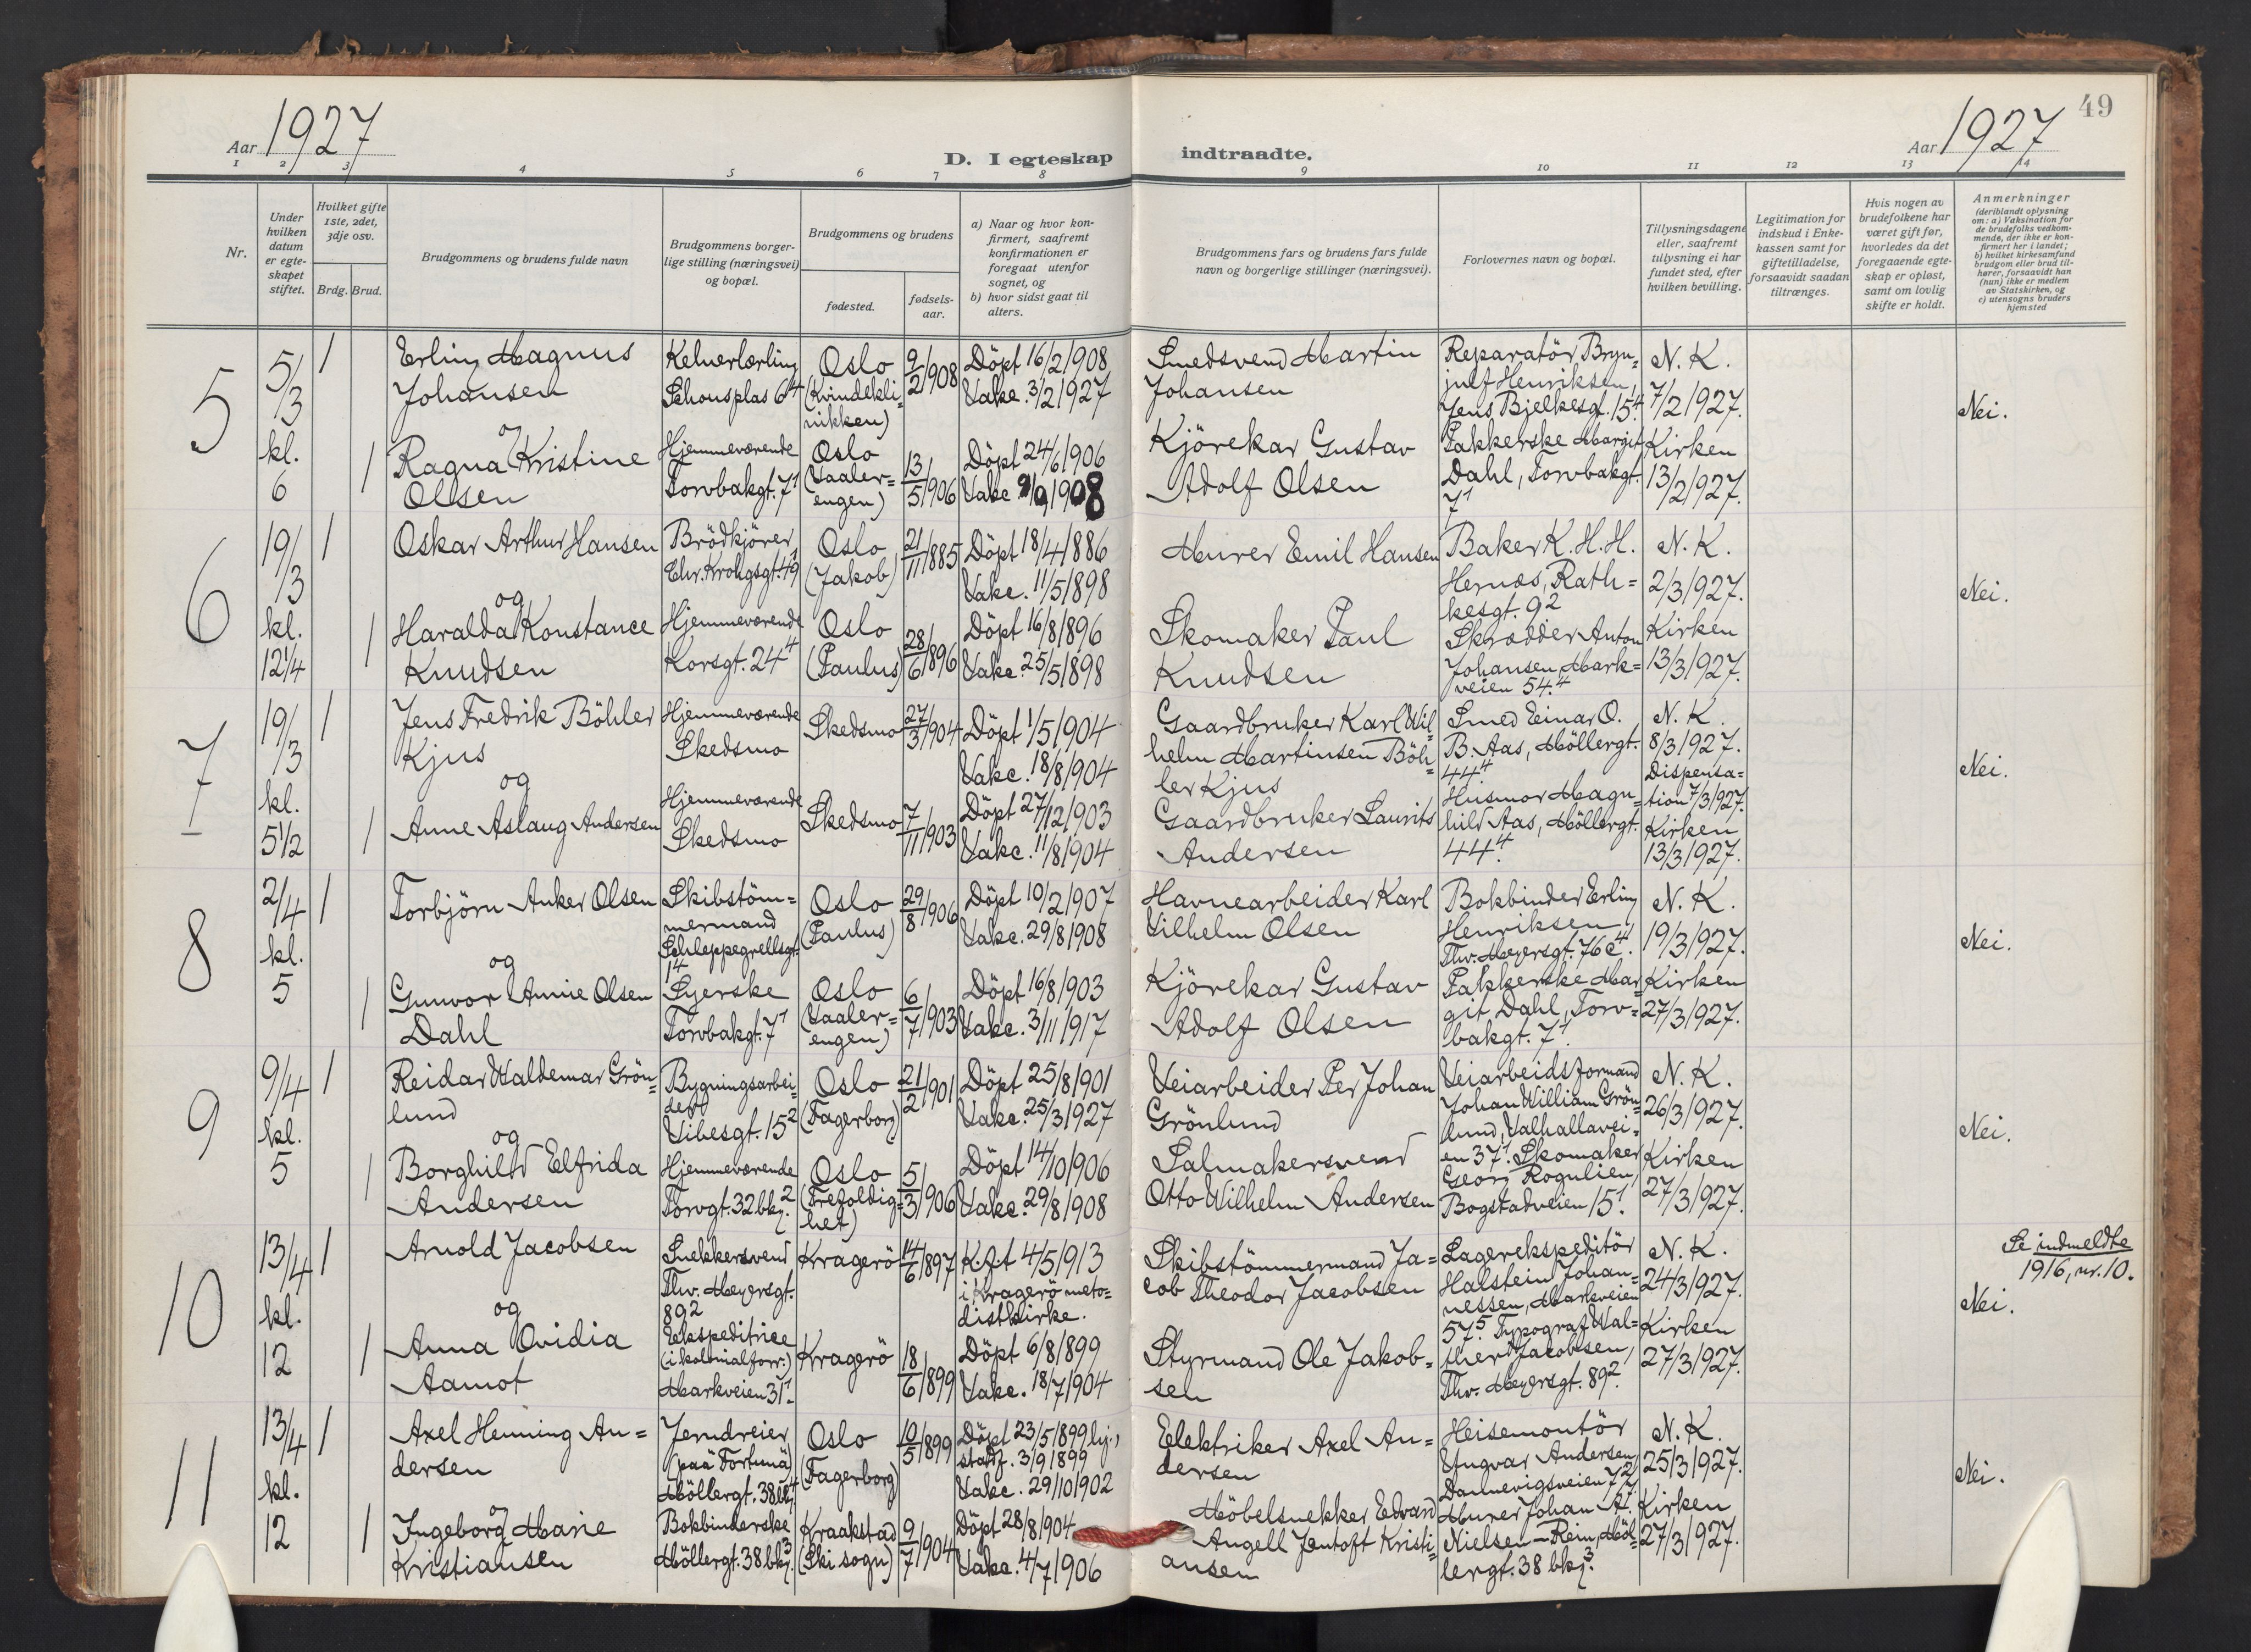 Aar 1927
D. I egteskap indtraadte.
Aar 1927
49
1 2 3 4 5 6 7 8 9 10 11 12 13 14
Nr.
Under
hvilken
datum
er egte-
skapet
stiftet.
Hvilket gifte
1ste, 2det,
3dje osv.
Brdg. Brud.
Brudgommens og brudens fulde navn
Brudgommens borger-
lige stilling (næringsvei)
og bopæl.
Brudgommens og brudens
fødested.
fødsels-
aar.
a) Naar og hvor kon-
firmert, saafremt
konfirmationen er
foregaat utenfor
sognet, og
b) hvor sidst gaat til
alters.
Brudgommens fars og brudens fars fulde
navn og borgerlige stillinger (næringsvei).
Forlovernes navn og bopæl.
Tillysningsdagene
eller, saafremt
tillysning ei har
fundet sted, efter
hvilken bevilling.
Legitimation for
indskud i Enke-
kassen samt for
giftetilladelse,
forsaavidt saadan
tiltrænges.
Hvis nogen av
brudefolkene har
været gift før,
hvorledes da det
foregaaende egte-
skap er opløst,
samt om lovlig
skifte er holdt.
Anmerkninger
(deriblandt oplysning
om: a) Vaksination for
de brudefolks vedkom-
mende, der ikke er kon-
firmert her i landet;
b) hvilket kirkesamfund
brudgom eller brud til-
hører, forsaavidt han
(hun) ikke er medlem
av Statskirken, og
c) utensogns bruders
hjemsted
5
5/3
kl.
6
1
Erling Magnus
Johansen
og
1
Ragna Kristine
Olsen
Kelnerlærling
Schousplas 6⁴
Hjemmeværende
Torvbakgt. 7¹
Oslo
(Kvindekli-
nikken)
Oslo
(Vaaler-
engen)
9/2 1908
13/5 1906
Döpt 16/2 1908
Vakc. 3/2 1927
Döpt 24/6 1906
Vakc. 9/9 1908
Smedsvend Martin
Johansen
Kjörekar Gustav
Adolf Olsen
Reparatör Bryn-
julf Henriksen,
Jens Bjelkesgt. 15⁴.
Pakkerske Margit
Dahl, Torvbakgt.
7¹
N. K.
7/2 1927.
Kirken
13/2 1927.
Nei.
6
19/3
kl.
12 1/4
1
Oskar Arthur Hansen
og
1
Haralda Konstance
Knudsen
Brödkjörer
Chr. Krohgsgt. 49¹
Hjemmeværende
Korsgt. 24⁴
Oslo
(Jakob)
Oslo
(Paulus)
21/11 1885
28/6 1896
Döpt 18/4 1886
Vakc. 11/5 1898
Döpt 16/8 1896
Vakc. 25/5 1898
Murer Emil Hansen
Skomaker Paul
Knudsen
Baker K. H. H.
Hernæs, Rath-
kesgt. 9²
Skrædder Anton
Johansen, Mark-
veien 54.⁴
N. K.
2/3 1927.
Kirken
13/3 1927.
Nei.
7
19/3
kl.
5 1/2
1
Jens Fredrik Böhler
Kjus
og
1
Anne Aslaug Andersen
Hjemmeværende
Skedsmo
Hjemmeværende
Skedsmo
Skedsmo
Skedsmo
27/3 1904
7/11 1903
Döpt 1/5 1904
Vakc. 18/8 1904
Döpt 27/12 1903
Vakc. 11/8 1904
Gaardbruker Karl Wil-
helm Martinsen Böh-
ler Kjus
Gaardbruker Laurits
Andersen
Smed Einar O.
B. Aas, Möllergt.
44⁴.
Husmor Magn-
hild Aas, Möllergt.
44⁴.
N. K.
8/3 1927.
Dispensa-
tion 7/3 1927.
Kirken
13/3 1927.
Nei.
8
2/4
kl.
5
1
Torbjörn Anker Olsen
og
1
Gunvor Annie Olsen
Dahl
Skibstöm-
mermand
Schleppegrellsgt.
14
Syerske
Torvbakgt. 7¹
Oslo
(Paulus)
Oslo
(Vaaler-
engen)
29/8 1906
6/7 1903
Döpt 10/2 1907
Vakc. 29/8 1908
Döpt 16/8 1903
Vakc. 3/11 1917
Havnearbeider Karl
Vilhelm Olsen
Kjörekar Gustav
Adolf Olsen
Bokbinder Erling
Henriksen,
Thv. Meyersgt. 76c⁴.
Pakkerske Mar-
git Dahl, Torv-
bakgt. 7¹.
N. K.
19/3 1927.
Kirken
27/3 1927.
Nei.
9
9/4
kl.
5
1
Reidar Waldemar Grön-
lund
og
1
Borghild Elfrida
Andersen
Bygningsarbei-
der
Vibesgt. 15²
Hjemmeværende
Torvgt. 32 bkg.²
Oslo
(Fagerborg)
Oslo
(Trefoldig-
het)
21/2 1901
5/3 1906
Döpt 25/8 1901
Vakc. 25/3 1927
Döpt 14/10 1906
Vakc. 29/8 1908
Veiarbeider Per Johan
Grönlund
Salmakersvend
Otto Wilhelm Andersen
Veiarbeidsformand
Johan William Grön-
lund, Valhallavei-
en 37¹. Skomaker
Georg Rogulien,
Bogstadveien 15¹.
N. K.
26/3 1927.
Kirken
27/3 1927.
Nei.
10
13/4
kl.
12
1
Arnold Jacobsen
og
1
Anna Ovidia
Aamot
Snekkersvend
Thv. Meyersgt.
89²
Ekspeditrice
(i kolonialforr.)
Markveien 31¹.
Kragerö
Kragerö
14/6 1897
18/6 1899
K.f.t 4/5 1913
i Kragerö meto-
distkirke.
Döpt 6/8 1899
Vakc. 18/7 1904
Skibstömmermand Ja-
cob Theodor Jacobsen
Styrmand Ole Jakob-
sen
Lagerekspeditör
Halstein Johan-
nessen, Markveien
57⁵. Typograf Wal-
ther Jacobsen,
Thv. Meyersgt. 89².
N. K.
24/3 1927.
Kirken
27/3 1927.
Se indmeldte
1916, nr. 10.
Nei.
11
13/4
kl.
12
1
Axel Henning An-
dersen
og
1
Ingeborg Marie
Kristiansen
Jerndreier
(paa Fortuna)
Möllergt. 38 bkg.⁴
Bokbinderske
Möllergt. 38 bkg.³
Oslo
(Fagerborg)
Kraakstad
(Ski sogn)
10/5 1899
9/7 1904
Döpt 23/5 1899 hj.,
stadf. 3/9 1899
Vakc. 29/10 1902
Döpt 28/8 1904
Vakc. 4/7 1906
Elektriker Axel An-
dersen
Möbelsnekker Edvard
Angell Jentoft Kristi-
ansen
Heisemontör
Yngvar Andersen,
Dannevigsveien 7²,
Murer Johan A.
Nielsen-Rein, Möl-
lergt. 38 bkg³.
N. K.
25/3 1927.
Kirken
27/3 1927.
Nei.